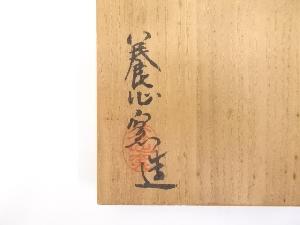 養心窯造